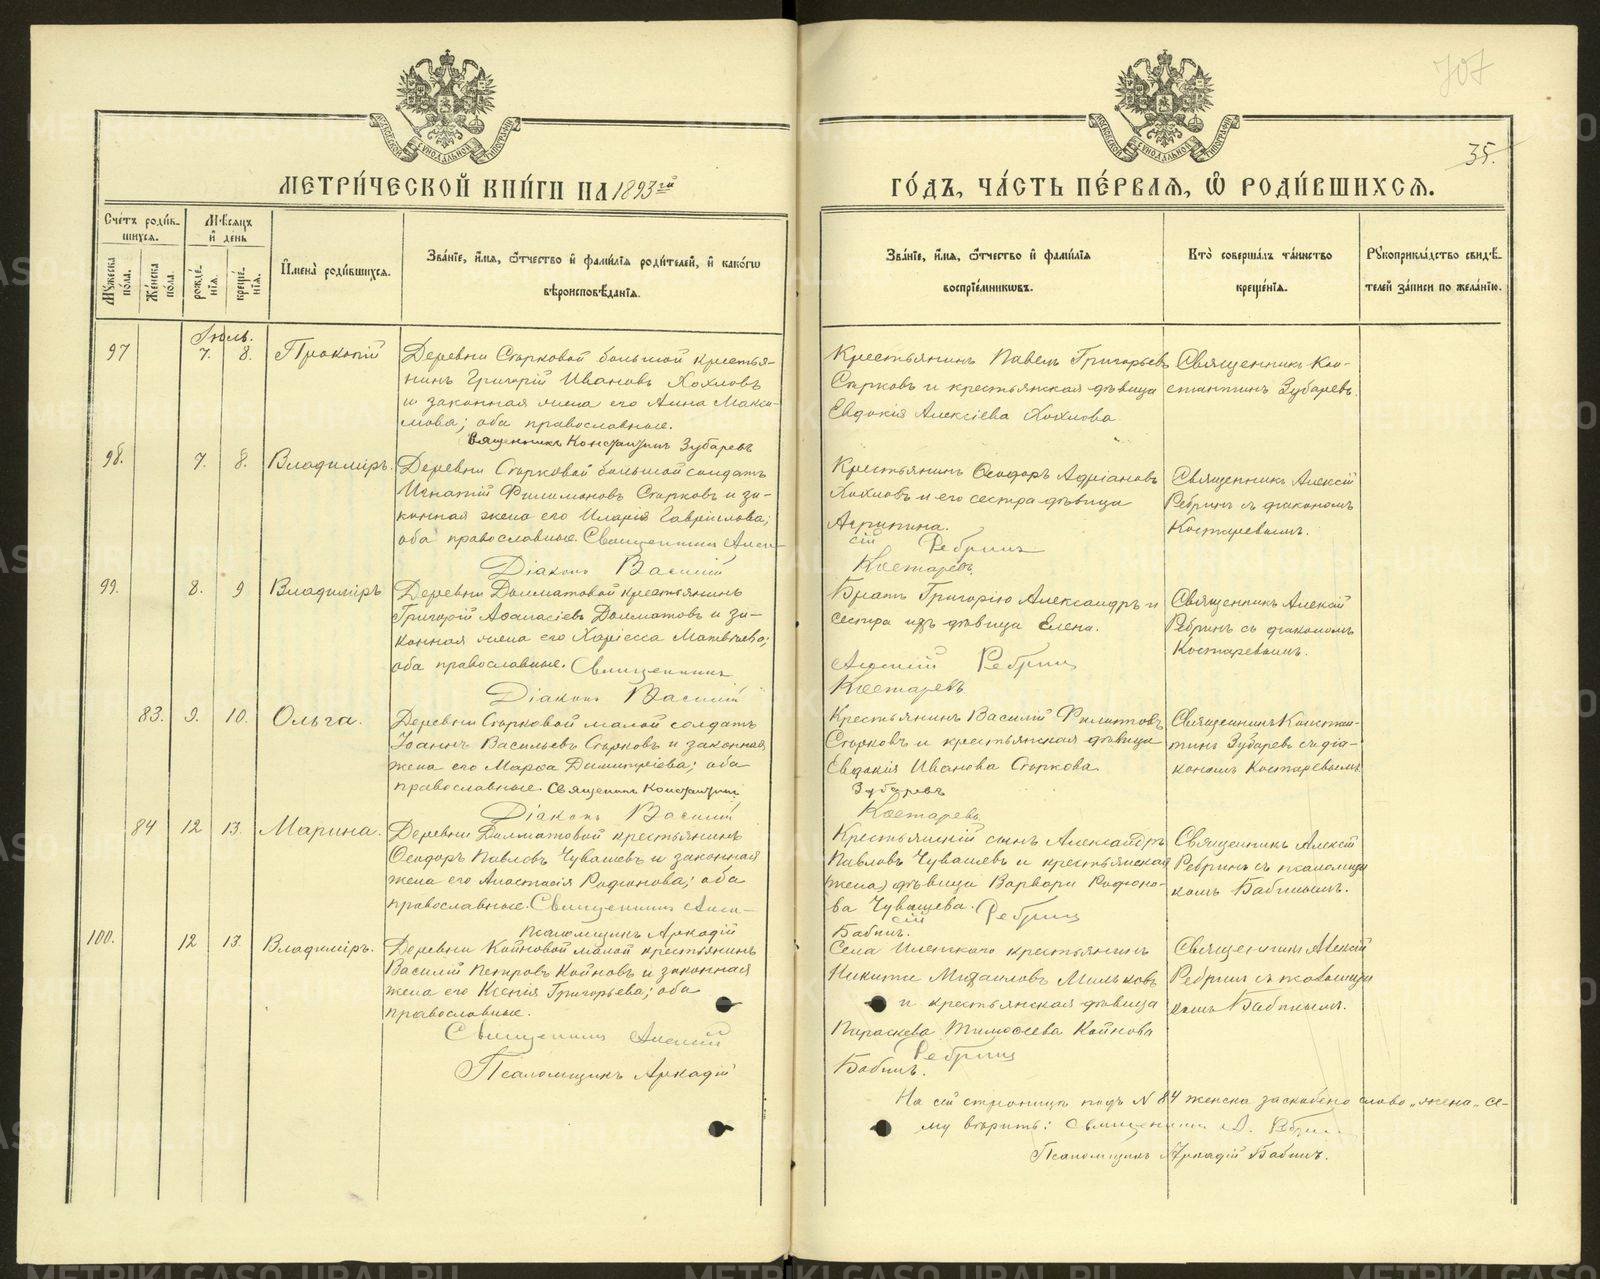 707
35.
МЕТРИ́ЧЕСКОЙ КНИ́ГИ НА 1893 гй
ГО́ДЪ, ЧА́СТЬ ПЕ́РВАЯ, Ѡ РОДИ́ВШИХСЯ.
Сче́тъ роди́вшихся.
Му́жеска по́ла.
Же́нска по́ла.
Мѣсяцъ и день
рожде́нія.
креще́нія.
И҆мена̀ роди́вшихся.
Зва́ніе, и҆́мя, ѻ҆́тчество и҆ фами́лія роди́телей, и҆ како́гѡ
вѣроисповѣ́данія.
Зва́ніе, и҆́мя, ѻ҆́тчество и҆ фами́лія
воспріе́мниковъ.
Кто̀ соверша́лъ та́инство
креще́нія.
Рукоприкла́дство свидѣ́-
телей за́писи по жела́нію.
Іюль.
97 7. 8. Прокопій
Деревни Старковой большой крестья-
нинъ Григорій Ивановъ Хохловъ
и законная жена его Анна Макси-
мова; оба православные.
Священникъ Константинъ Зубаревъ
Крестьянинъ Павелъ Григорьевъ
Старковъ и крестьянская дѣвица
Евдокія Алексіева Хохлова
Священникъ Кон-
стантинъ Зубаревъ.
98. 7. 8. Владиміръ.
Деревни Старковой большой солдатъ
Игнатій Филимоновъ Старковъ и за-
конная жена его Иларія Гавріилова;
оба православные. Священникъ Алек-
Діаконъ Василій
Крестьянинъ Ѳеодоръ Адріановъ
Хохловъ и его сестра дѣвица
Агрипина.
сій Ребринъ
Костаревъ.
Священникъ Алексій
Ребринъ съ діакономъ
Костаревымъ.
99. 8. 9 Владиміръ
Деревни Долматовой крестьянинъ
Григорій Аѳанасіевъ Долматовъ и за-
конная жена его Харіесса Матвѣева;
оба православные. Священникъ
Діаконъ Василій
Братъ Григорію Александръ и
сестра ихъ дѣвица Елена.
Алексій Ребринъ
Костаревъ.
Священникъ Алексій
Ребринъ съ діакономъ
Костаревымъ.
83. 9. 10. Ольга.
Деревни Старковой малой солдатъ
Іоаннъ Васильевъ Старковъ и законная
жена его Марѳа Димитріева; оба
православные. Священникъ Константинъ
Діаконъ Василій
Крестьянинъ Василій Филиповъ
Старковъ и крестьянская дѣвица
Евдокія Иванова Старкова.
Зубаревъ
Костаревъ
Священникъ Констан-
тинъ Зубаревъ съ діа-
кономъ Костаревымъ.
84 12 13. Марина.
Деревни Долматовой крестьянинъ
Ѳеодоръ Павловъ Чувашевъ и законная
жена его Анастасія Родіонова; оба
православные. Священникъ Алек-
Псаломщикъ Аркадій
Крестьянскій сынъ Александръ
Павловъ Чувашевъ и крестьянская
(жена) дѣвица Варвара Родіоно-
ва Чувашева.
сій Ребринъ
Бабинъ.
Священникъ Алексій
Ребринъ съ псаломщи-
комъ Бабинымъ.
100. 12 13. Владиміръ.
Деревни Койновой малой крестьянинъ
Василій Петровъ Койновъ и законная
жена его Ксенія Григорьева; оба
православные.
Священникъ Алексій
Псаломщикъ Аркадій
Села крестьянинъ
Никита Михаиловъ Мильковъ
и крестьянская дѣвица
Параскева Тимоѳеева Койнова
Ребринъ
Бабинъ.
Священникъ Алексій
Ребринъ съ псаломщи-
комъ Бабинымъ.
На сей страницѣ подъ № 84 женска заскоблено слово „жена“ се-
му вѣрить: Священникъ А. Ребринъ
Псаломщикъ Аркадій Бабинъ.